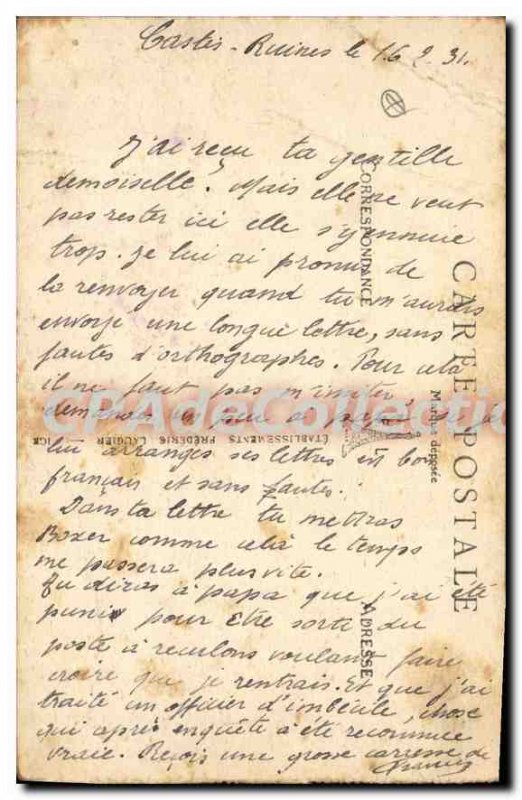 Castes-Ruines le 16 2. 31.
J'ai reçu ta gentille
demoiselle. Mais elle ne veut
pas rester ici elle s'y ennuie
trop. Je lui ai promis de
la renvoyer quand tu m'auras
envoyé une longue lettre, sans
fautes d'orthographes. Pour cela
il ne faut pas m'imiter,
demandes un peu à
lui arranges ses lettres est bon
français et sans fautes.
Dans ta lettre tu mettras
Boxer comme celà le temps
me passera plus vite.
Tu diras à papa que j'ai été
puni pour être sorti du
poste à reculons voulant faire
croire que je rentrais. Et que j'ai
traité un officier d'imbécile, chose
qui après enquête à été reconnue
vraie. Reçois une grosse carresse de
Francis
CORRESPONDANCE
CARTE POSTALE
Marque déposée
ÉTABLISSEMENTS FRÉDÉRIC LAUGIER - NICE
ADRESSE
CPAdeCollection